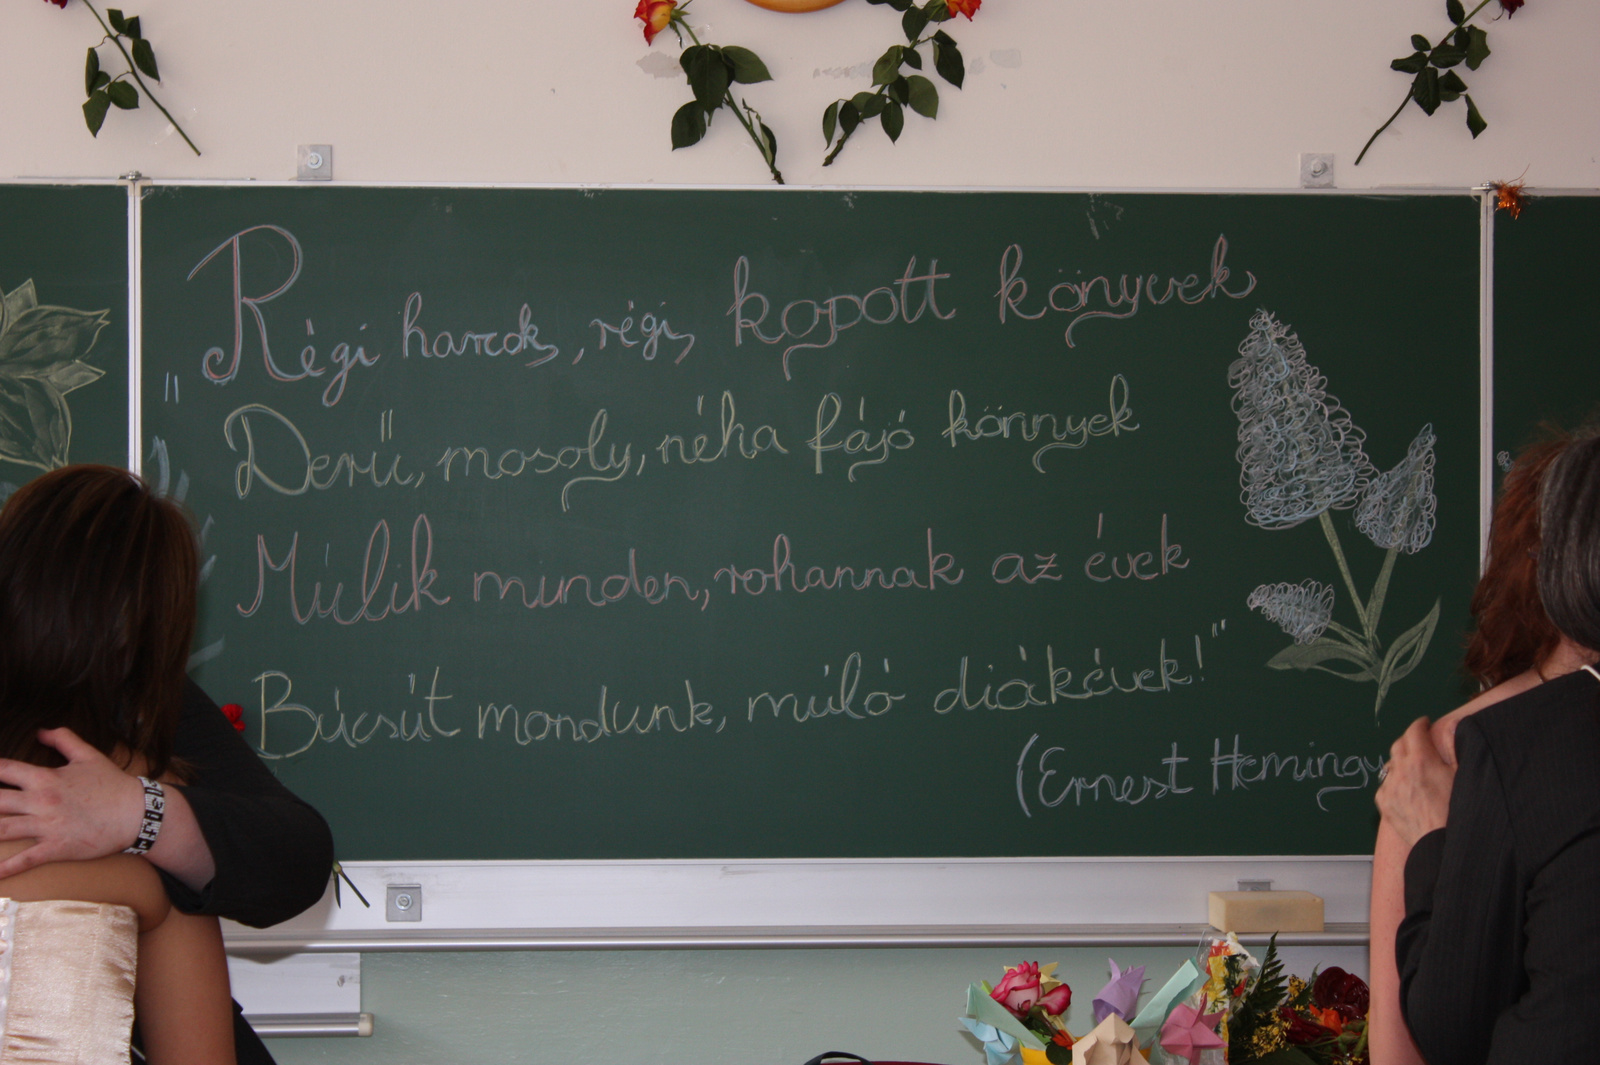 „Régi harcok, régi, kopott könyvek
Derű, mosoly, néha fájó könnyek
Múlik minden, rohannak az évek
Búcsút mondunk, múló diákévek!"
(Ernest Hemingw